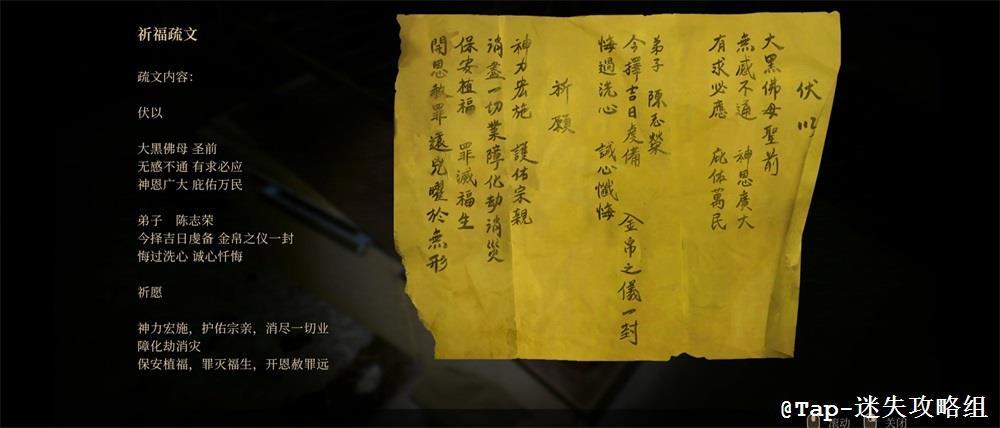 祈福疏文
疏文内容:
伏以
大黑佛母 圣前
无感不通 有求必应
神恩广大 庇佑万民
弟子 陈志荣
今择吉日虔备 金帛之仪一封
悔过洗心 诚心忏悔
祈愿
神力宏施，护佑宗亲，消尽一切业
障化劫消灾
保安植福，罪灭福生，开恩赦罪远
伏以
大黑佛母聖前
無感不通 神恩廣大
有求必應 庇佑萬民
弟子 陳志榮
今擇吉日虔備 金帛之儀一封
悔過洗心 誠心懺悔
祈願
神力宏施 護佑宗親
消盡一切業障化劫消災
保安植福 罪滅福生
開恩赦罪遠兇曜於無形
@Tap-迷失攻略组
滚动 关闭